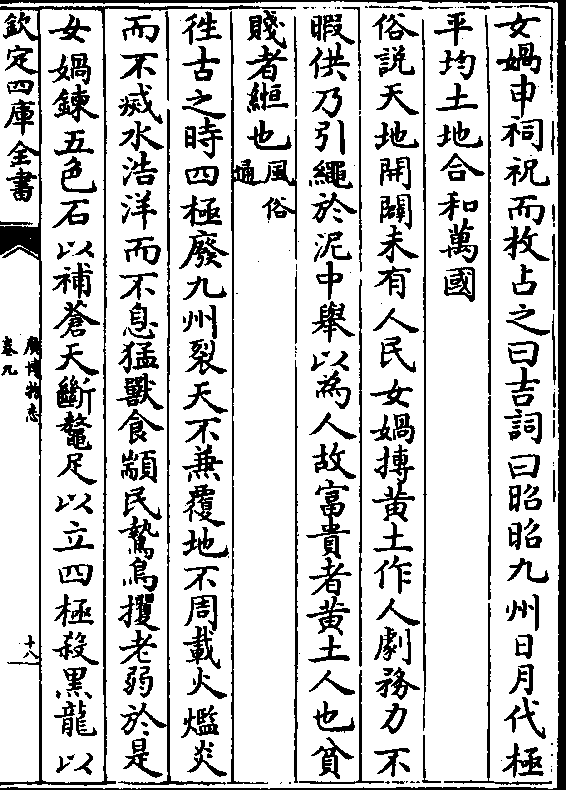 女媧申祠祝而枚占之曰吉詞曰昭昭九州日月代極
平均土地合和萬國
俗說天地開闢未有人民女媧摶黄土作人劇務力不
暇供乃引繩於泥中舉以為人故富貴者黄土人也貧
賤者縆也風俗通
徃古之時四極廢九州裂天不兼覆地不周載火爁炎
而不滅水浩洋而不息猛獸食顓民鷙鳥攫老弱於是
女媧鍊五色石以補蒼天斷鼇足以立四極殺黑龍以
欽定四庫全書
廣博物志
卷九
十八